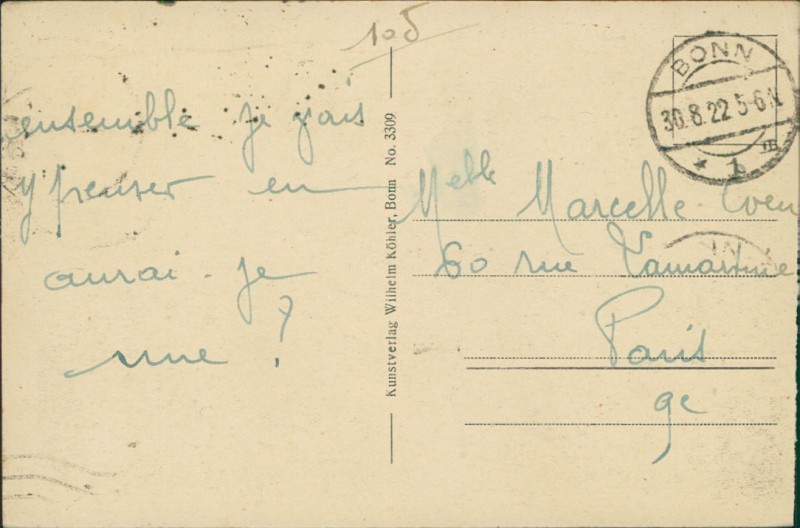 105
ensemble je vais
y penser en
aurai-je
une ?
Kunstverlag Wilhelm Köhler, Bonn No. 3309
BONN
30.8.22 5-6 N
* 1
Melle Marcelle
60 rue Lamartine
Paris
9e